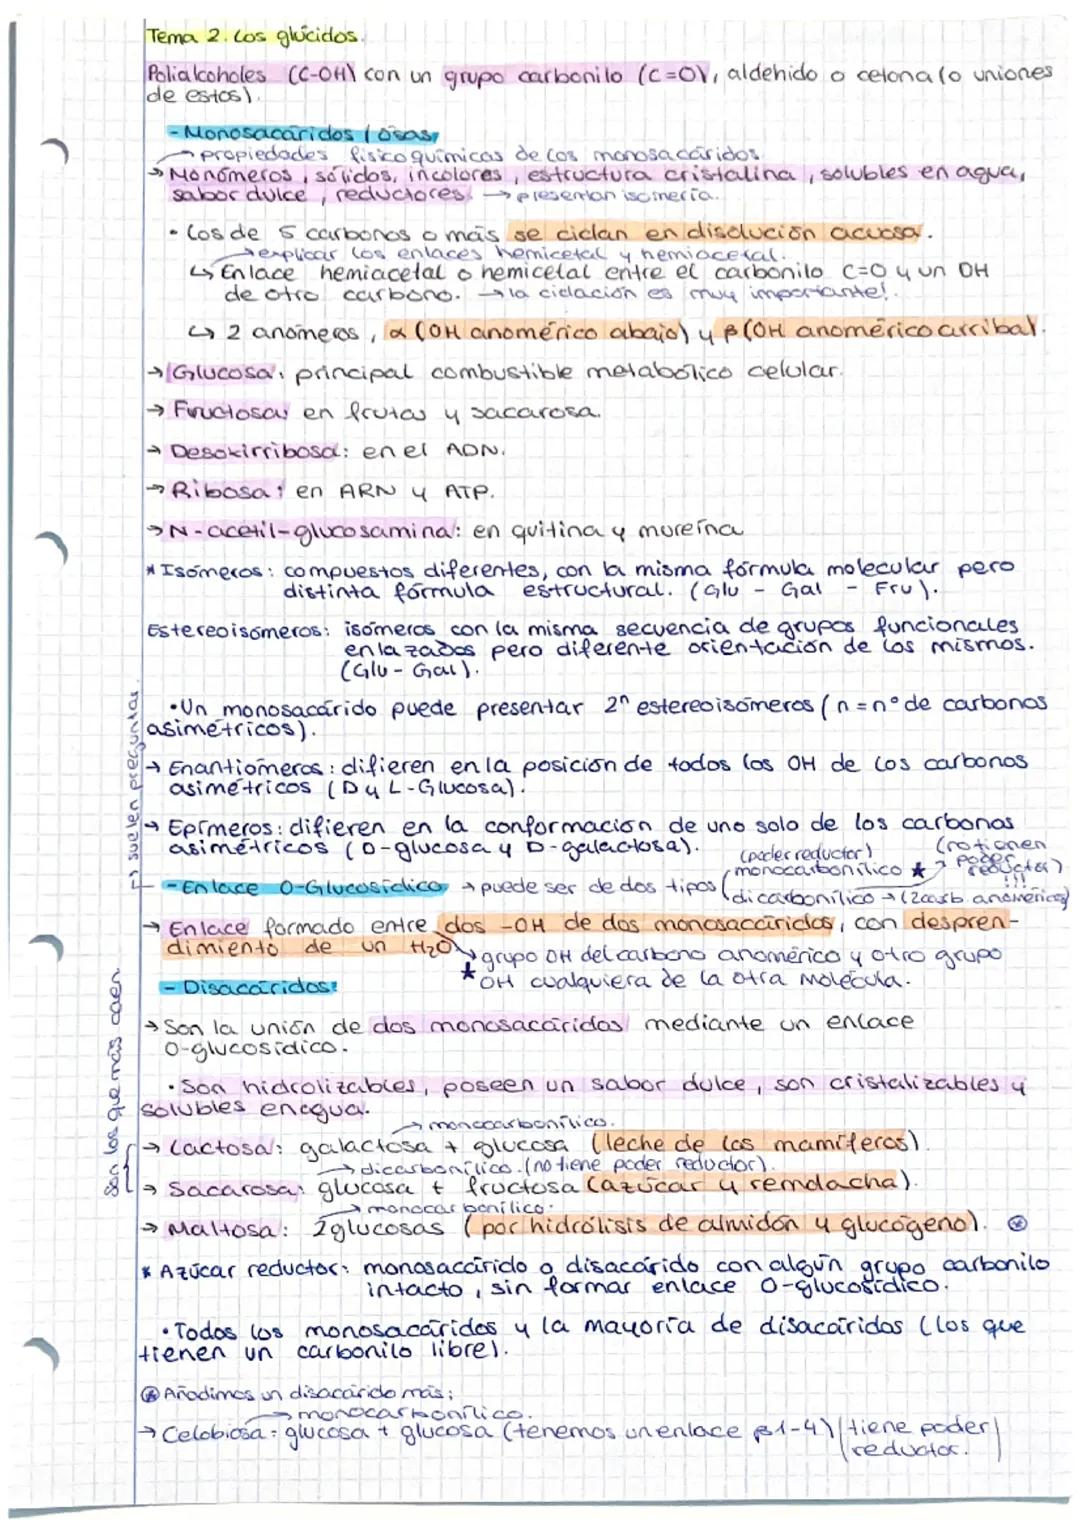 Tema 2. Los glúcidos.
Polialcoholes (C-OH) con un grupo carbonilo (C=O), aldehído o cetona (o uniones
de estos).
- Monosacáridos / osas,
→ propiedades fisicoquímicas de los monosacáridos.
→ Monómeros, sólidos, incolores, estructura cristalina, solubles en agua,
sabor dulce, reductores. → presentan isomería.
· Los de 5 carbonos o más se ciclan en disolución acuosa.
→ explicar los enlaces hemicetal y hemiacetal.
↳ Enlace hemiacetal o hemicetal entre el carbonilo C=O y un OH
de otro carbono. → la ciclación es muy importante!.
↳ 2 anómeros, α (OH anomérico abajo) y β (OH anomérico arriba).
→ Glucosa: principal combustible metabólico celular.
→ Fructosa: en frutas y sacarosa.
→ Desoxirribosa: en el ADN.
→ Ribosa: en ARN y ATP.
→ N-acetil-glucosamina: en quitina y mureína
* Isómeros: compuestos diferentes, con la misma fórmula molecular pero
distinta fórmula estructural. (Glu - Gal - Fru).
Estereoisómeros: isómeros con la misma secuencia de grupos funcionales
enlazados pero diferente orientación de los mismos.
(Glu - Gal).
· Un monosacárido puede presentar 2ⁿ estereoisómeros (n = nº de carbonos
asimétricos).
→ Enantiómeros: difieren en la posición de todos los OH de los carbonos
asimétricos (D y L-Glucosa).
→ Epímeros: difieren en la conformación de uno solo de los carbonos
asimétricos (D-glucosa y D-galactosa).
↳ suelen preguntar.
(poder reductor)
(no tienen poder reductor) !!!
- Enlace O-Glucosídico → puede ser de dos tipos
monocarbonílico ★
dicarbonílico → (2 carb. anoméricos)
→ Enlace formado entre dos -OH de dos monosacáridos, con despren-
dimiento de un H₂O
↘ grupo OH del carbono anomérico y otro grupo
★ OH cualquiera de la otra molécula.
- Disacáridos:
→ Son la unión de dos monosacáridos mediante un enlace
O-glucosídico.
· Son hidrolizables, poseen un sabor dulce, son cristalizables y
solubles en agua.
Son los que más caen
→ monocarbonílico.
→ Lactosa: galactosa + glucosa (leche de los mamíferos).
→ dicarbonílico. (no tiene poder reductor).
→ Sacarosa: glucosa + fructosa (azúcar y remolacha).
→ monocarbonílico.
→ Maltosa: 2 glucosas (por hidrólisis de almidón y glucógeno). ⊛
* Azúcar reductor: monosacárido o disacárido con algún grupo carbonilo
intacto, sin formar enlace O-glucosídico.
· Todos los monosacáridos y la mayoría de disacáridos (los que
tienen un carbonilo libre).
⊛ Añadimos un disacárido más:
→ monocarbonílico.
→ Celobiosa: glucosa + glucosa (tenemos un enlace β1-4) (tiene poder
reductor.)